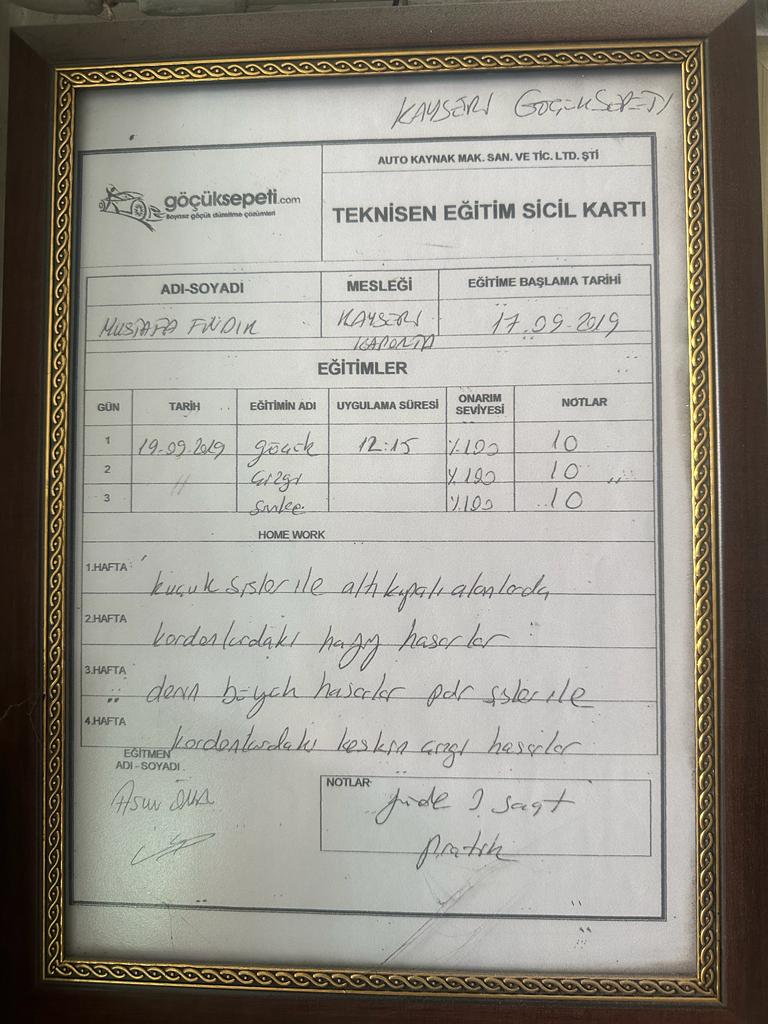 KAYSERİ GÖÇÜKSEPETİ
göçüksepeti.com
Boyasız göçük düzeltme çözümleri
AUTO KAYNAK MAK. SAN. VE TİC. LTD. ŞTİ
TEKNİSEN EĞİTİM SİCİL KARTI
ADI-SOYADI MESLEĞİ EĞİTİME BAŞLAMA TARİHİ
MUSTAFA FINDIK KAYSERİ 17.09.2019
KAPORTA
EĞİTİMLER
GÜN TARİH EĞİTİMİN ADI UYGULAMA SÜRESİ ONARIM SEVİYESİ NOTLAR
1 19-09-2019 göçük 12:15 %100 10
2 " çizgi %100 10 "
3 %100 10
HOME WORK
1.HAFTA küçük şişler ile altı kapalı alanlarda
2.HAFTA kordonlardaki hasarlar
3.HAFTA derin büyük hasarlar pdr şişler ile
4.HAFTA kordonlardaki keskin çizgi hasarlar
EĞİTMEN
ADI-SOYADI
NOTLAR
saat
Pratik